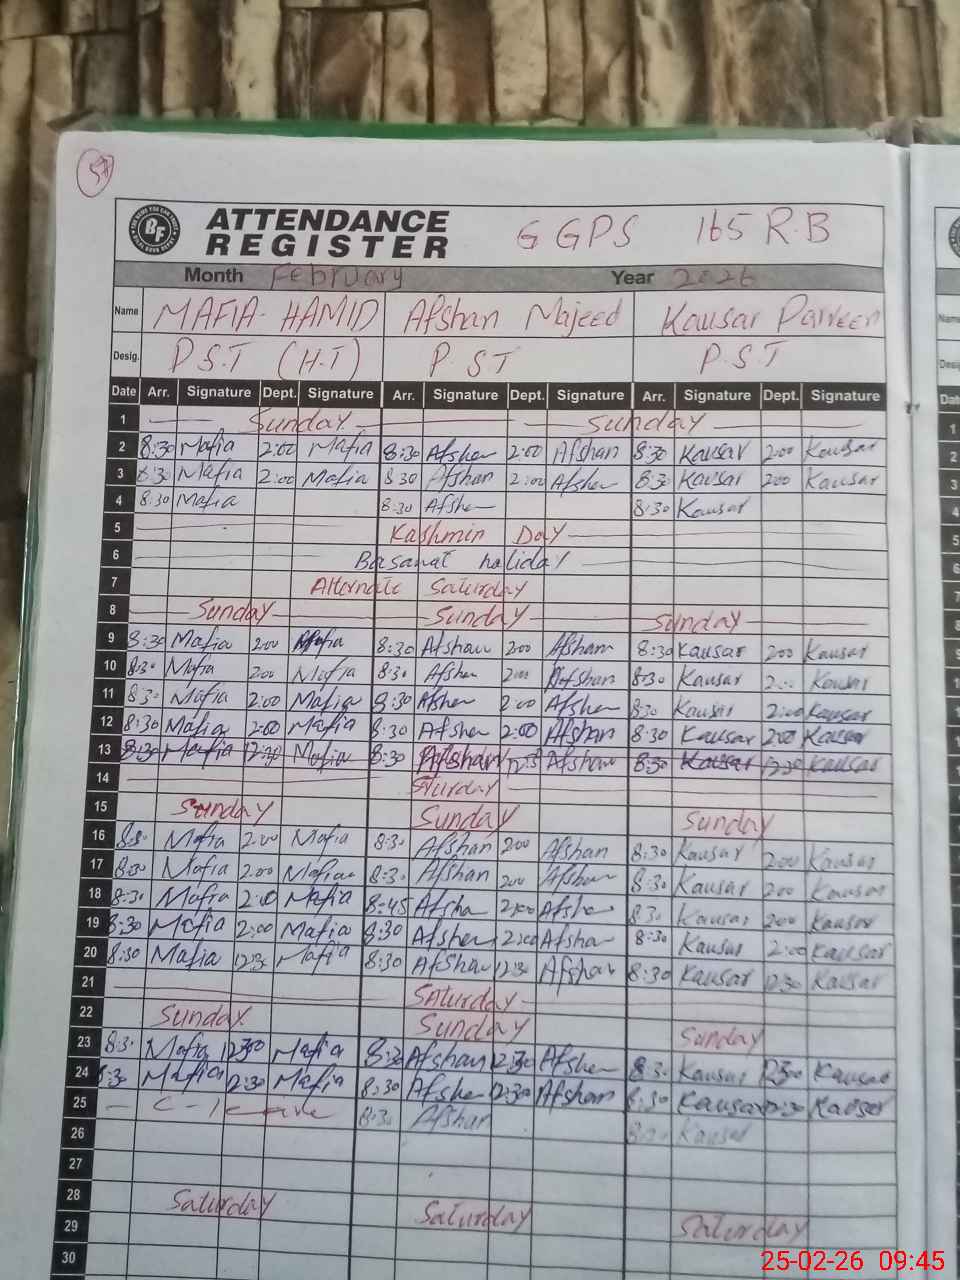 57
ATTENDANCE REGISTER G GPS 165 R.B
Month February Year 2026
Name MAFIA HAMID Afshan Majeed Kausar Parveen
Desig. P.S.T (H.T) P.S.T P.S.T
Date Arr. Signature Dept. Signature Arr. Signature Dept. Signature Arr. Signature Dept. Signature
1 Sunday Sunday
2 8:30 Mafia 2:00 Mafia 8:30 Afshan 2:00 Afshan 8:30 Kausar 2:00 Kausar
3 8:30 Mafia 2:00 Mafia 8:30 Afshan 2:00 Afshan 8:30 Kausar 2:00 Kausar
4 8:30 Mafia 8:30 Afshan 8:30 Kausar
5 Kashmir Day
6 Basanat holiday
7 Alternate Saturday
8 Sunday Sunday Sunday
9 8:30 Mafia 2:00 Mafia 8:30 Afshan 2:00 Afshan 8:30 Kausar 2:00 Kausar
10 8:30 Mafia 2:00 Mafia 8:30 Afshan 2:00 Afshan 8:30 Kausar 2:00 Kausar
11 8:30 Mafia 2:00 Mafia 8:30 Afshan 2:00 Afshan 8:30 Kausar 2:00 Kausar
12 8:30 Mafia 2:00 Mafia 8:30 Afshan 2:00 Afshan 8:30 Kausar 2:00 Kausar
13 8:30 Mafia 12:30 Mafia 8:30 Afshan 12:30 Afshan 8:30 Kausar 12:30 Kausar
14 Sturday
15 Sunday Sunday Sunday
16 8:30 Mafia 2:00 Mafia 8:30 Afshan 2:00 Afshan 8:30 Kausar 2:00 Kausar
17 8:30 Mafia 2:00 Mafia 8:30 Afshan 2:00 Afshan 8:30 Kausar 2:00 Kausar
18 8:30 Mafia 2:00 Mafia 8:45 Afshan 2:00 Afshan 8:30 Kausar 2:00 Kausar
19 8:30 Mafia 2:00 Mafia 8:30 Afshan 2:00 Afshan 8:30 Kausar 2:00 Kausar
20 8:30 Mafia 12:30 Mafia 8:30 Afshan 12:30 Afshan 8:30 Kausar 12:30 Kausar
21 Saturday
22 Sunday Sunday Sunday
23 8:30 Mafia 12:30 Mafia 8:30 Afshan 12:30 Afshan 8:30 Kausar 12:30 Kausar
24 8:30 Mafia 12:30 Mafia 8:30 Afshan 12:30 Afshan 8:30 Kausar 12:30 Kausar
25 C-leave 8:30 Afshan 8:30 Kausar
26
27
28 Saturday Saturday Saturday
29
30
25-02-26 09:45